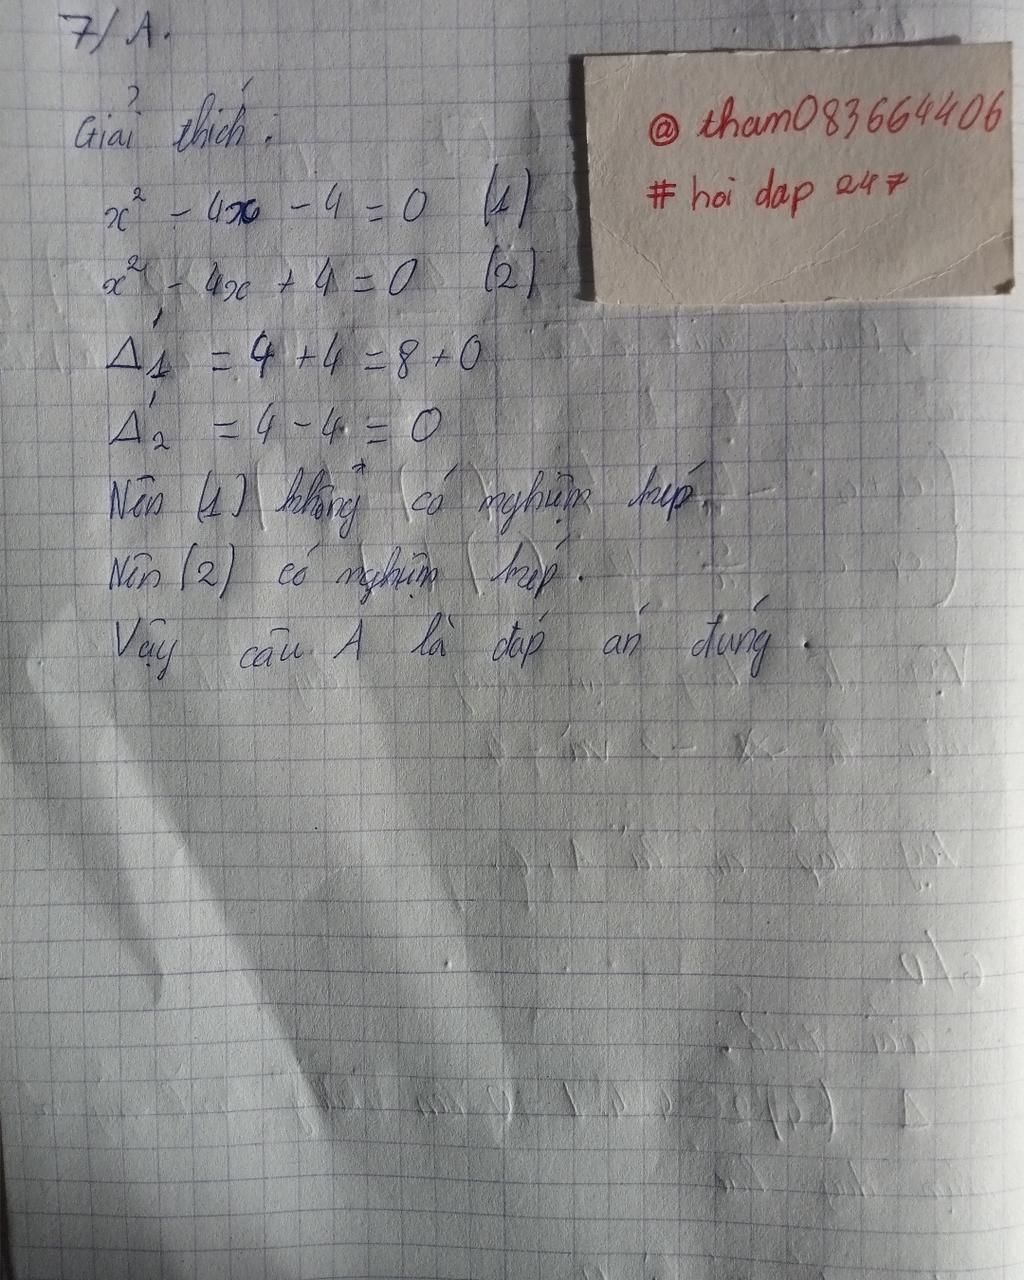 7/ A.
Giải thích:
x² - 4x - 4 = 0 (1)
x² - 4x + 4 = 0 (2)
Δ'₁ = 4 + 4 = 8 + 0
Δ'₂ = 4 - 4 = 0
Nên (1) không có nghiệm kép.
Nên (2) có nghiệm kép.
Vậy câu A là đáp án đúng.
@ tham083664406
# hoi dap 247